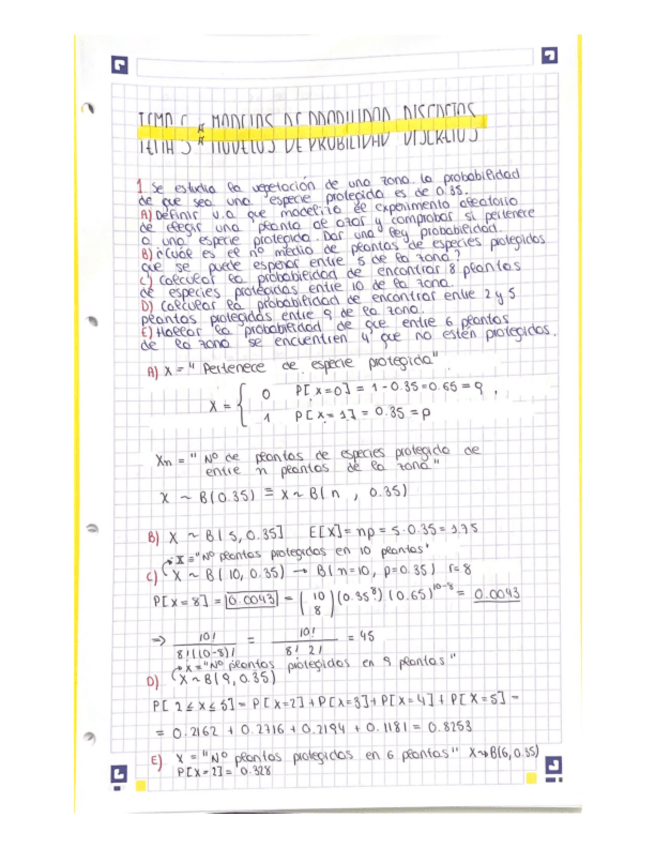 TEMA 5 * MODELOS DE PROBILIDAD DISCRETOS
1 Se estudia la vegetación de una zona. la probabilidad
de que sea una especie protegida es de 0.35.
A) Definir v.a que modeliza el experimento aleatorio
de elegir una planta al azar y comprobar si pertenece
a una especie protegida. Dar una ley probabilidad.
B) ¿Cuál es el nº medio de plantas de especies protegidas
que se puede esperar entre 5 de la zona?
C) Calcular la probabilidad de encontrar 8 plantas
de especies protegidas entre 10 de la zona.
D) Calcular la probabilidad de encontrar entre 2 y 5
plantas protegidas entre 9 de la zona.
E) Hallar la probabilidad de que entre 6 plantas
de la zona se encuentren 4 que no estén protegidas.
A) X = " Pertenece de especie protegida"
X = { 0 P[X=0] = 1 - 0.35 = 0.65 = q ,
1 P[X=1] = 0.35 = p
Xn = " Nº de plantas de especies protegida de
entre n plantas de la zona"
X ~ B(0.35) ≡ X ~ B(n , 0.35)
B) X ~ B[5, 0.35] E[X] = np = 5 · 0.35 = 1.75
X = "Nº plantas protegidas en 10 plantas"
C) X ~ B(10, 0.35) → B(n=10, p=0.35) r=8
P[X=8] = 0.0043 = (10 8) (0.35⁸) (0.65)¹⁰⁻⁸ = 0.0043
⇒ 10! / 8!(10-8)! = 10! / 8! 2! = 45
X = "Nº plantas protegidas en 9 plantas"
D) X ~ B(9, 0.35)
P[2 ≤ X ≤ 5] = P[X=2] + P[X=3] + P[X=4] + P[X=5] =
= 0.2162 + 0.2716 + 0.2194 + 0.1181 = 0.8253
E) X = "Nº plantas protegidas en 6 plantas" X → B(6, 0.35)
P[X=2] = 0.328